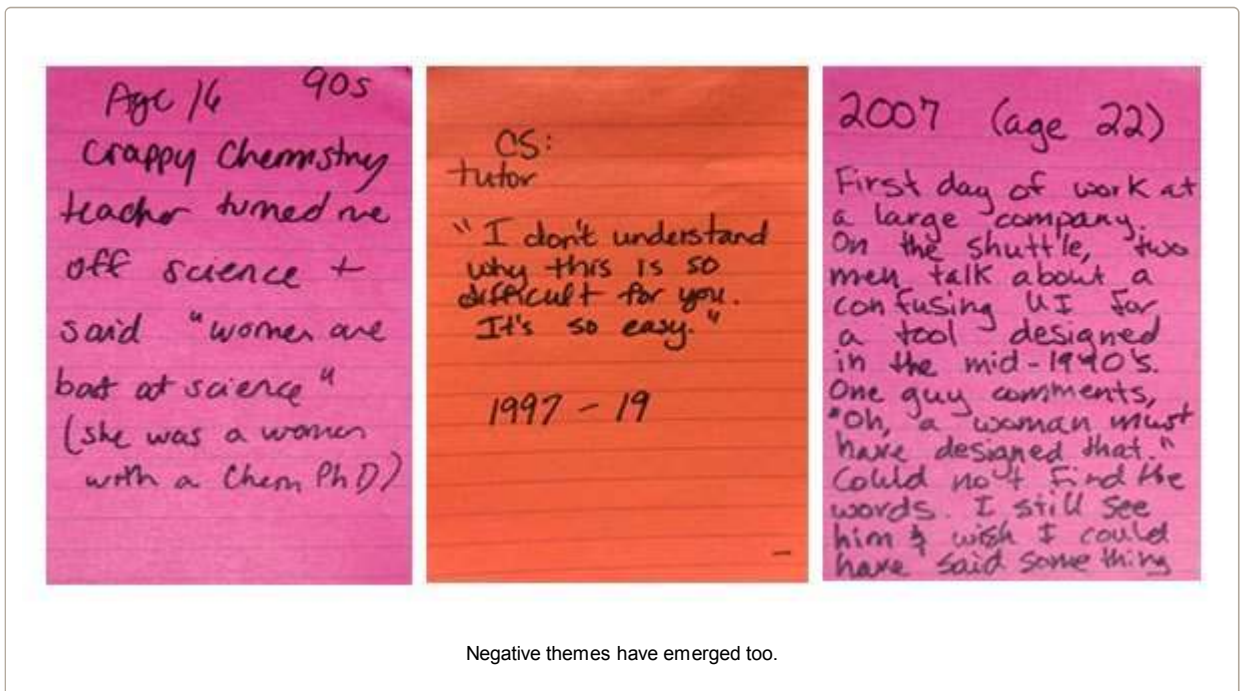 Age 16 90s
Crappy Chemistry
teacher turned me
off science +
said "women are
bad at science"
(she was a women
with a Chem PhD)
CS:
tutor
"I don't understand
why this is so
difficult for you.
It's so easy."
1997 - 19
2007 (age 22)
First day of work at
a large company.
On the shuttle, two
men talk about a
confusing UI for
a tool designed
in the mid-1990's.
One guy comments,
"Oh, a woman must
have designed that."
Could not find the
words. I still see
him & wish I could
have said something
Negative themes have emerged too.